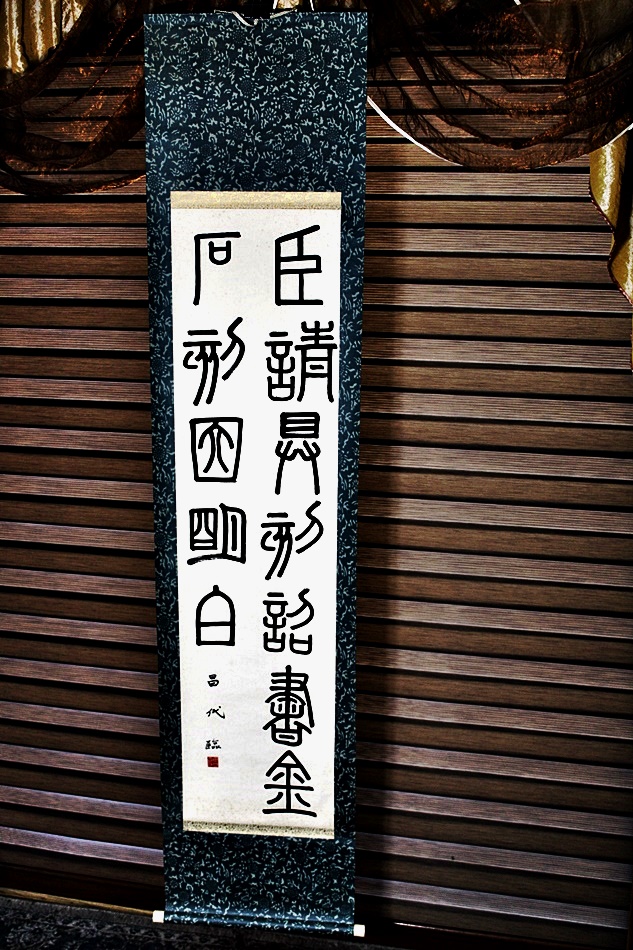 臣請具刻詔書金
石刻因明白
昌代臨